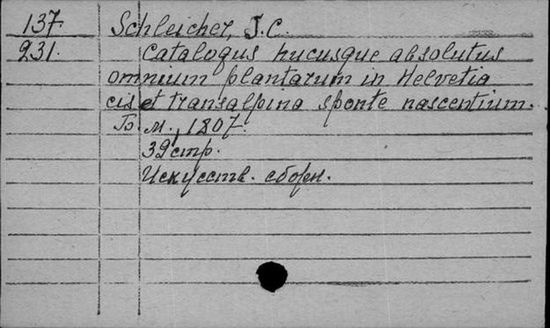 137. Schleicher, J.C.
231. Catalogus hucusque absolutus
omnium plantarum in Helvetia
cis et transalpina sponte nascentium.
Б. м., 1807.
32 стр.
Искусств. сборн.